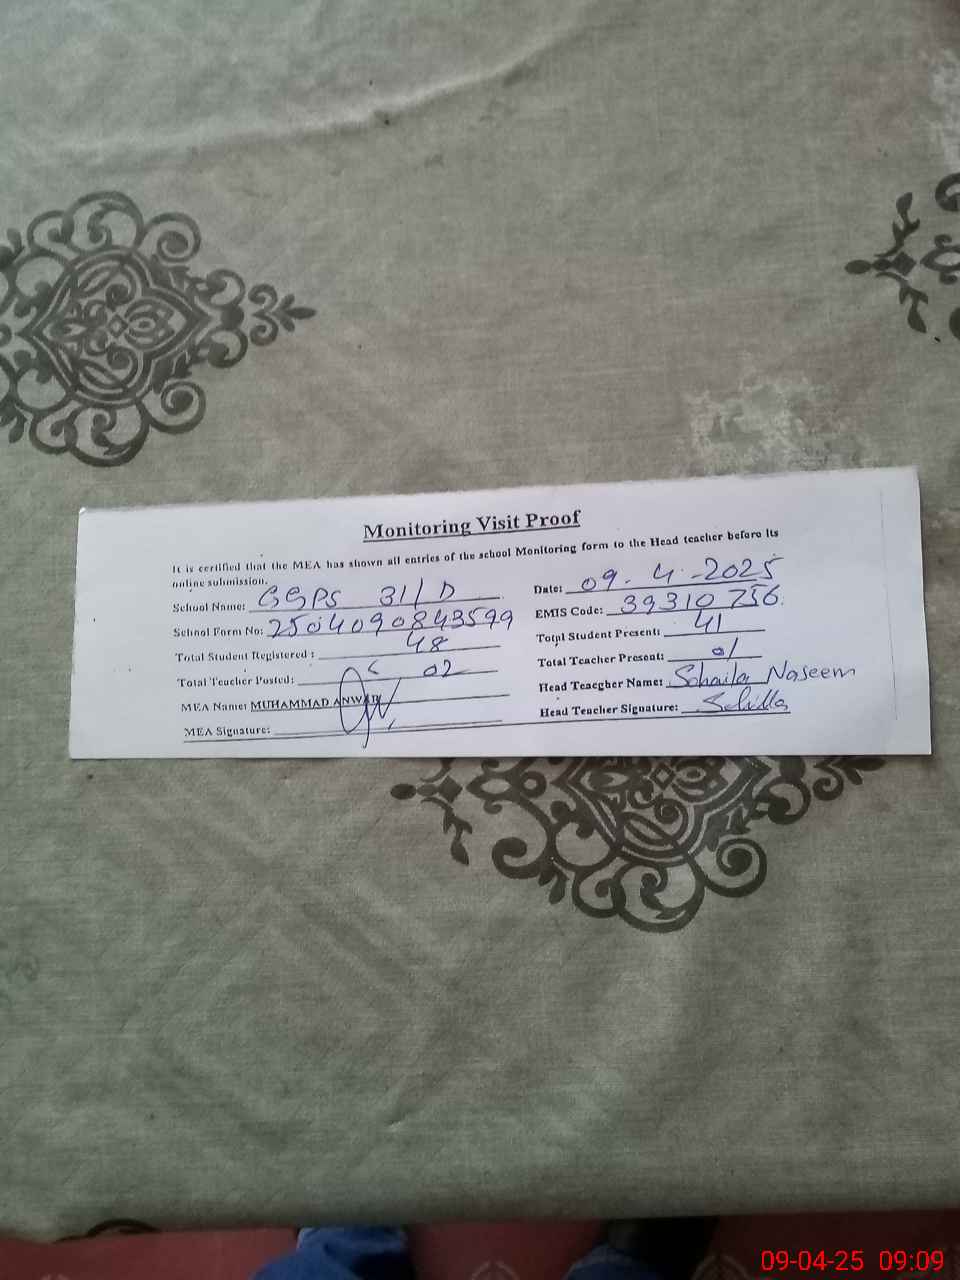 Monitoring Visit Proof
It is certified that the MEA has shown all entries of the school Monitoring form to the Head teacher before its
online submission.
School Name: GGPS 31/D
Date: 09-4-2025
School Form No: 2504090843599
EMIS Code: 39310756
Total Student Registered : 48
Total Student Present: 41
Total Teacher Posted: 02
Total Teacher Present: 01
MEA Name: MUHAMMAD ANWAR
Head Teacgher Name: Sohaila Naseem
MEA Signature:
Head Teacher Signature:
09-04-25 09:09